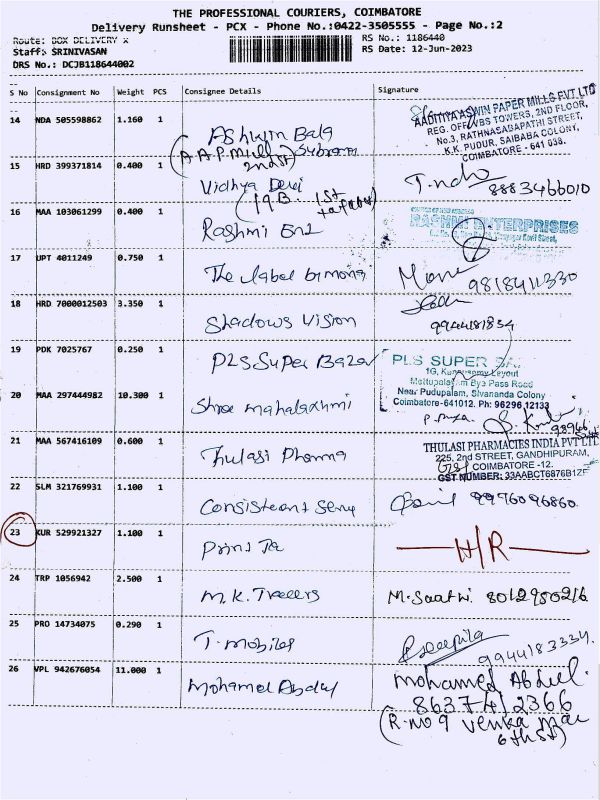 THE PROFESSIONAL COURIERS, COIMBATORE
Delivery Runsheet - PCX - Phone No.:0422-3505555 - Page No.:2
Route: BOX DELIVERY X
Staff: SRINIVASAN
DRS No.: DCJB118644002
RS No.: 1186440
RS Date: 12-Jun-2023
S No Consignment No Weight PCS Consignee Details Signature
14 NDA 505598862 1.160 1 Ashwin Bala
(A.A.P. Mill
2nd st)
AADITIYA ASWIN PAPER MILLS PVT.LTD
REG. OFF: VBS TOWERS, 2ND FLOOR,
No.3, RATHNASABAPATHI STREET,
K.K. PUDUR, SAIBABA COLONY,
COIMBATORE - 641 038.
15 HRD 399371814 0.400 1 Vidhya Devi
(19B. 1st
8883466010
16 MAA 103061299 0.400 1 Rashmi Ent
RASHMI ENTERPRISES
17 UPT 4011249 0.750 1 The label by mona
9818411330
18 HRD 7000012503 3.350 1 Shadows Vision
9944181834
19 PDK 7025767 0.250 1 PLS Super Bazar
PLS SUPER
Mettupalayam Bye Pass Road
Near Pudupalam, Sivananda Colony
Coimbatore-641012. Ph: 96296 12133
20 MAA 297444982 10.300 1 Shree mahalaxhmi
21 MAA 567416109 0.600 1 Thulasi Pharma
THULASI PHARMACIES INDIA PVT LTD
225, 2nd STREET, GANDHIPURAM,
COIMBATORE -12.
GST NUMBER: 33AABCT6876B1ZF
22 SLM 321769931 1.100 1 Consisteant Serve
9976096860
23 KUR 529921327 1.100 1 Print Ta
N/R
24 TRP 1056942 2.500 1 M.K. Traders
M. Saathi 8012980216
25 PRO 14734075 0.290 1 T. mobiles
Deepika
9944183334
26 VPL 942676054 11.000 1 Mohamed Abdul
mohamed Abdul.
8637412366
(R.no 9 Venka
6th st)